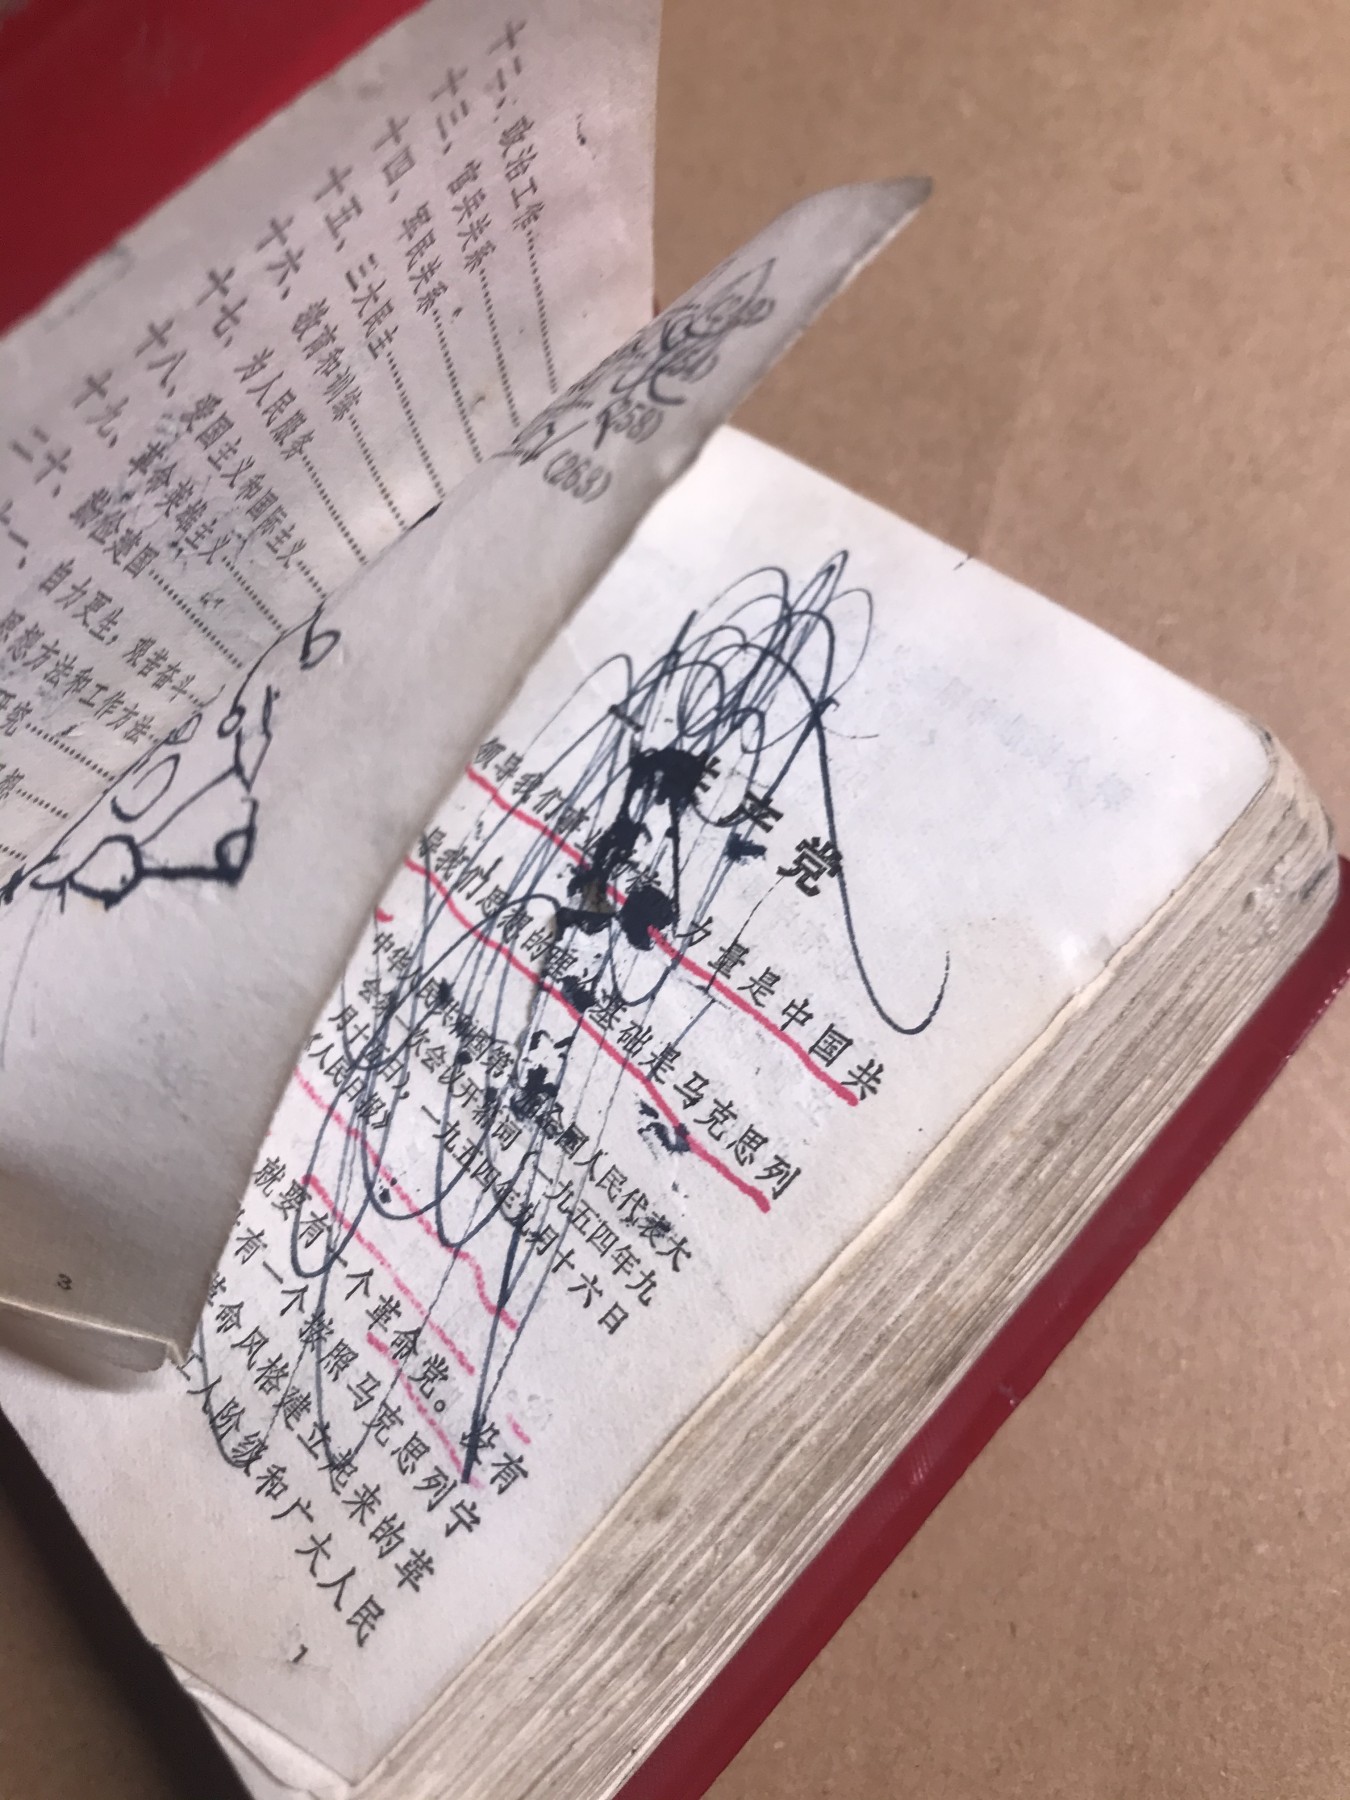 十二、政治工作
十三、官兵关系
十四、军民关系
十五、三大民主
十六、教育和训练
十七、为人民服务
十八、爱国主义和国际主义
十九、革命英雄主义
二十、勤俭建国
一、自力更生，艰苦奋斗
思想方法和工作方法
(259)
(263)
3
共产党
领导我们事业的核心力量是中国共
导我们思想的理论基础是马克思列
中华人民共和国第一届全国人民代表大
会第一次会议开幕词（一九五四年九
月十五日），一九五四年九月十六日
《人民日报》
就要有一个革命党。没有
有一个按照马克思列宁
革命风格建立起来的革
工人阶级和广大人民
1